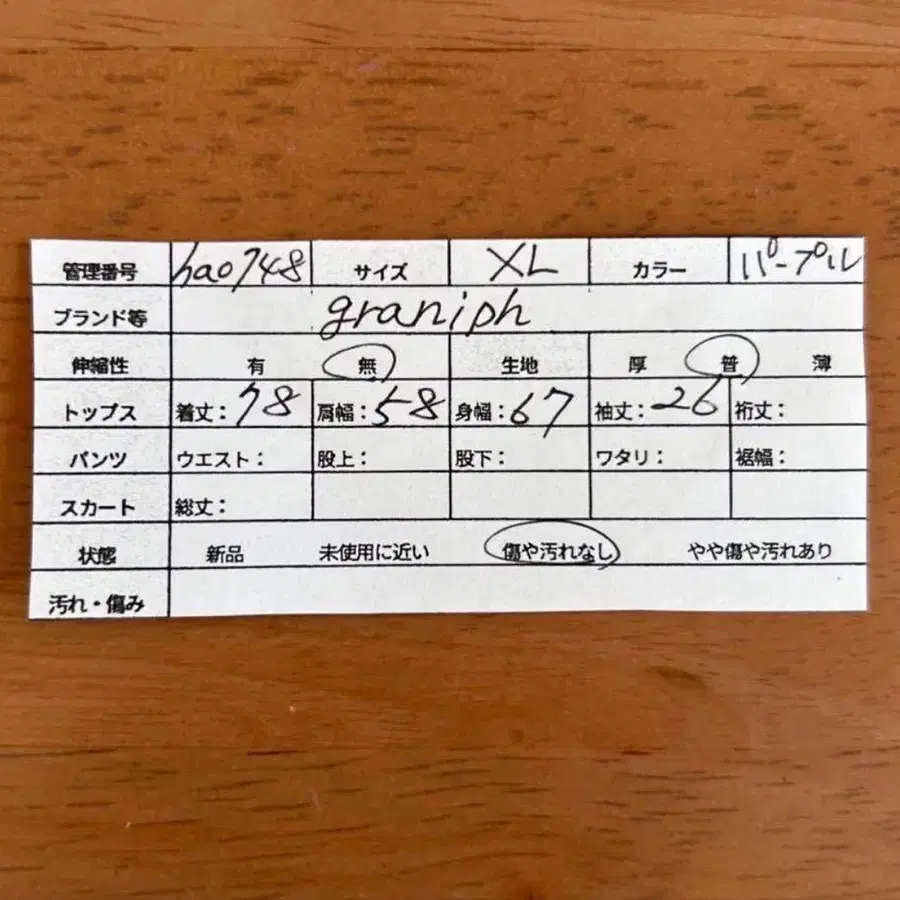 管理番号 hao748 サイズ XL カラー パープル
ブランド等 graniph
伸縮性 有 無 生地 厚 普 薄
トップス 着丈:78 肩幅:58 身幅:67 袖丈:26 裄丈:
パンツ ウエスト: 股上: 股下: ワタリ: 裾幅:
スカート 総丈:
状態 新品 未使用に近い 傷や汚れなし やや傷や汚れあり
汚れ・傷み